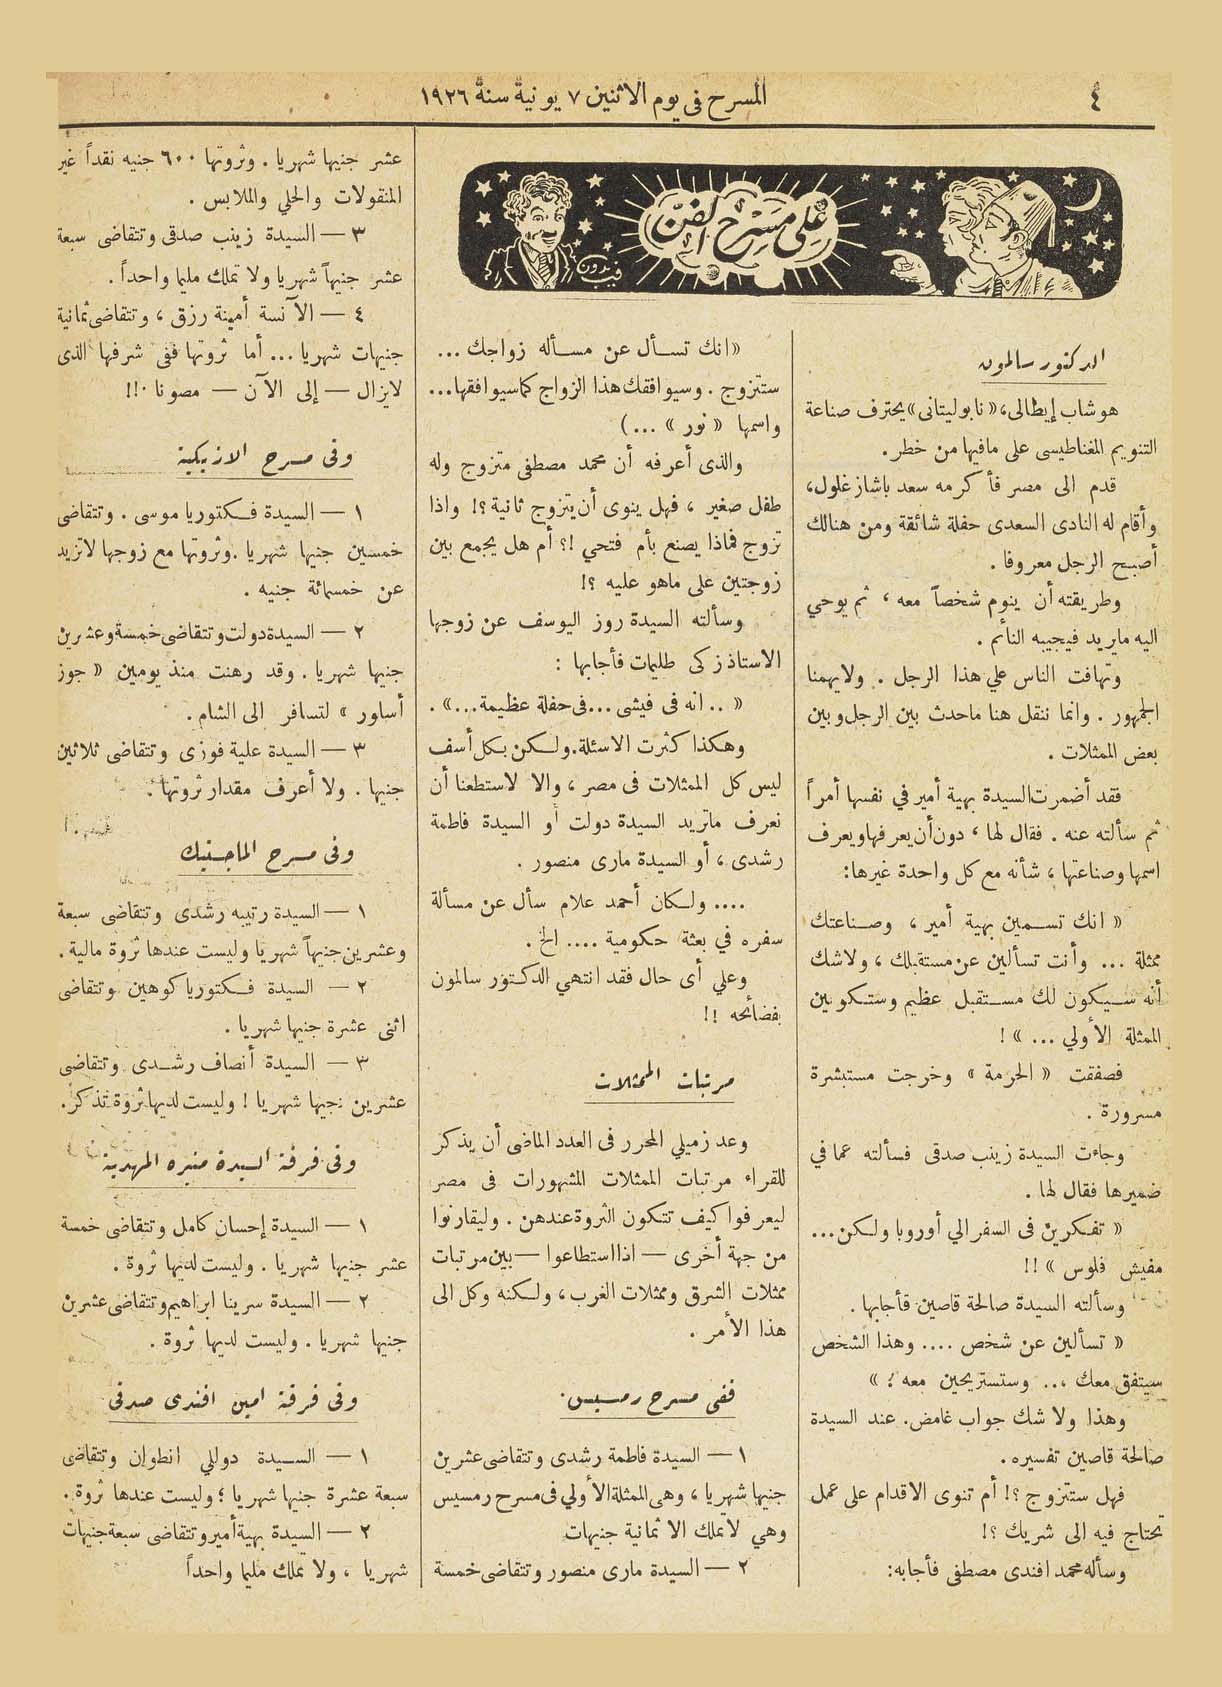 ٤
المسرح فى يوم الاثنين ٧ يونية سنة ١٩٢٦
على مسرح الفن
فريدون
الدكتور سالمون
هو شاب إيطالى، «نابوليتانى» يحترف صناعة
التنويم المغناطيسى على مافيها من خطر.
قدم الى مصر فأكرمه سعد باشا زغلول،
وأقام له النادى السعدى حفلة شائقة ومن هنالك
أصبح الرجل معروفا .
وطريقته أن ينوم شخصاً معه ، ثم يوحي
اليه مايريد فيجيبه النائم .
وتهافت الناس علي هذا الرجل . ولايهمنا
الجمهور . وانما ننقل هنا ماحدث بين الرجل وبين
بعض الممثلات .
فقد أضمرت السيدة بهية أمير في نفسها أمراً
ثم سألته عنه . فقال لها ، دون أن يعرفها ويعرف
اسمها وصناعتها ، شأنه مع كل واحدة غيرها:
« انك تسمين بهية أمير ، وصناعتك
ممثلة ... وأنت تسألين عن مستقبلك ، ولاشك
أنه سيكون لك مستقبل عظيم وستكونين
الممثلة الأولي ... » !
فصفقت « الحرمة » وخرجت مستبشرة
مسرورة .
وجاءت السيدة زينب صدقى فسألته عما في
ضميرها فقال لها .
« تفكرين فى السفر الي أوروبا ولكن...
مفيش فلوس » !!
وسألته السيدة صالحة قاصين فأجابها .
« تسألين عن شخص .... وهذا الشخص
سيتفق معك ... وستستريحين معه ! »
وهذا ولا شك جواب غامض. عند السيدة
صالحة قاصين تفسيره .
فهل ستتزوج ؟! أم تنوى الاقدام على عمل
تحتاج فيه الى شريك ؟!
وسأله محمد افندى مصطفى فأجابه:
«انك تسأل عن مسأله زواجك ...
ستتزوج . وسيوافقك هذا الزواج كما سيوافقها...
واسمها « نور » ... )
والذى أعرفه أن محمد مصطفى متزوج وله
طفل صغير ، فهل ينوى أن يتزوج ثانية ؟! واذا
تزوج فماذا يصنع بأم فتحي !؟ أم هل يجمع بين
زوجتين على ماهو عليه ؟!
وسألته السيدة روز اليوسف عن زوجها
الاستاذ زكى طليمات فأجابها :
« .. انه فى فيشى ... فى حفلة عظيمة...» .
وهكذا كثرت الاسئلة. ولكن بكل أسف
ليس كل الممثلات فى مصر ، والا لاستطعنا أن
نعرف ماتريد السيدة دولت أو السيدة فاطمة
رشدى ، أو السيدة مارى منصور .
.... ولكان أحمد علام سأل عن مسألة
سفره في بعثة حكومية .... الخ .
وعلي أى حال فقد انتهي الدكتور سالمون
بفضائحه !!
مرتبات الممثلات
وعد زميلي المحرر فى العدد الماضى أن يذكر
للقراء مرتبات الممثلات المشهورات فى مصر
ليعرفوا كيف تتكون الثروة عندهن . وليقارنوا
من جهة أخرى — اذا استطاعوا — بين مرتبات
ممثلات الشرق وممثلات الغرب ، ولكنه وكل الى
هذا الأمر .
ففى مسرح رمسيس
١ — السيدة فاطمة رشدى وتتقاضى عشرين
جنيها شهريا ، وهى الممثلة الأولي فى مسرح رمسيس
وهي لا تملك الا ثمانية جنيهات
٢ — السيدة مارى منصور وتتقاضى خمسة
عشر جنيها شهريا . وثروتها ٦٠٠ جنيه نقداً غير
المنقولات والحلي والملابس .
٣ — السيدة زينب صدقى وتتقاضى سبعة
عشر جنيهاً شهريا ولا تملك مليما واحداً .
٤ — الآنسة أمينة رزق ، وتتقاضى ثمانية
جنيهات شهريا ... أما ثروتها ففى شرفها الذى
لايزال — إلى الآن — مصونا !!
وفى مسرح الازبكية
١ — السيدة فكتوريا موسى . وتتقاضى
خمسين جنيها شهريا . وثروتها مع زوجها لاتزيد
عن خمسمائة جنيه .
٢ — السيدة دولت وتتقاضى خمسة وعشرين
جنيها شهريا . وقد رهنت منذ يومين « جوز
أساور » لتسافر الى الشام .
٣ — السيدة علية فوزى وتتقاضى ثلاثين
جنيها . ولا أعرف مقدار ثروتها .
وفى مسرح الماجستيك
١ — السيدة رتيبه رشدى وتتقاضى سبعة
وعشرين جنيهاً شهريا وليست عندها ثروة مالية .
٢ — السيدة فكتوريا كوهين وتتقاضى
اثنى عشرة جنيها شهريا .
٣ — السيدة أنصاف رشدى وتتقاضى
عشرين جنيها شهريا ! وليست لديها ثروة تذكر .
وفى فرقة السيدة منيره المهدية
١ — السيدة إحسان كامل وتتقاضى خمسة
عشر جنيها شهريا . وليست لديها ثروة .
٢ — السيدة سرينا ابراهيم وتتقاضى عشرين
جنيها شهريا . وليست لديها ثروة .
وفى فرقة امين افندى صدقى
١ — السيدة دوللي انطوان وتتقاضى
سبعة عشرة جنيها شهريا ؛ وليست عندها ثروة .
٢ — السيدة بهية أمير وتتقاضى سبعة جنيهات
شهريا ، ولا تملك مليما واحداً